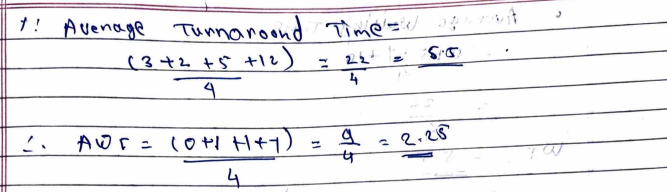 ∴ Average Turnaround Time =
(3+2+5+12)/4 = 22/4 = 5.5
∴ AWT = (0+1+1+7)/4 = 9/4 = 2.25